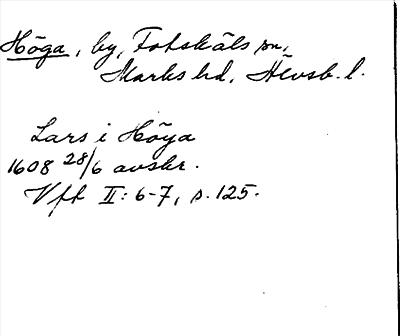 Höga, by, Fotskäls sn,
Marks hd, Älvsb. l.
Lars i Höga
1608 28/6 avskr.
Vft II: 6-7, s. 125.